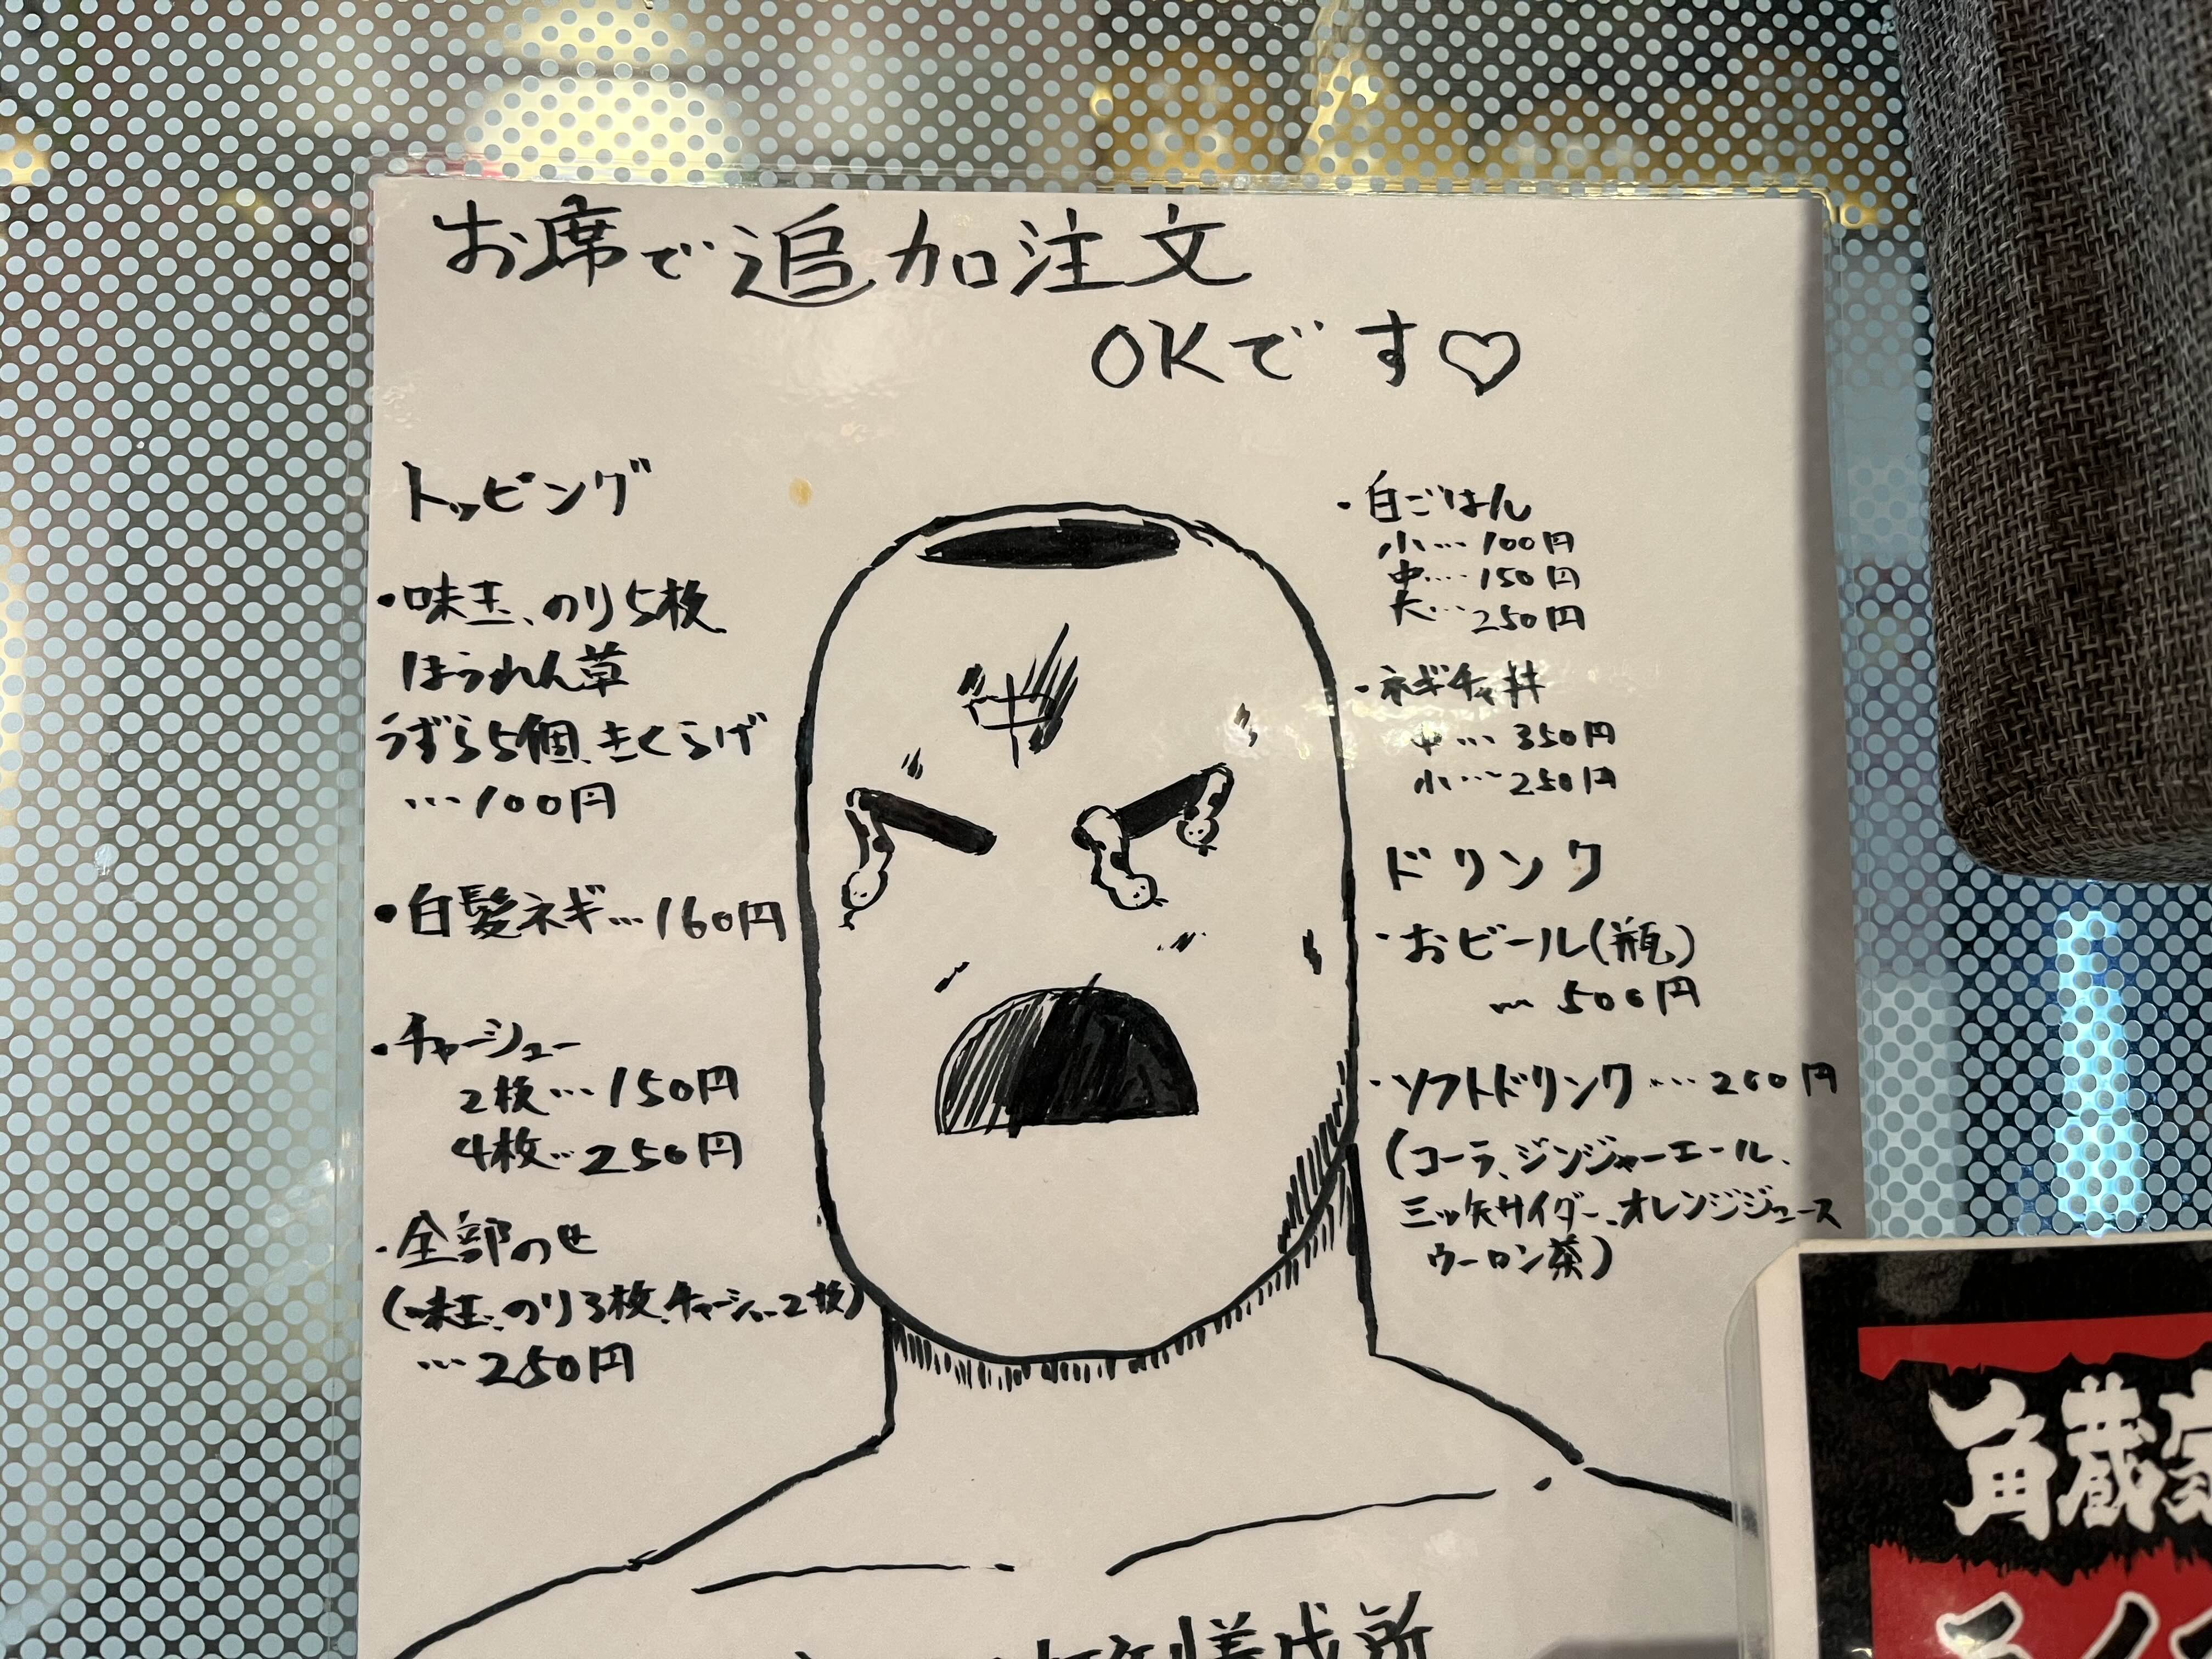 お席で追加注文
OKです♡
トッピング
・味玉、のり5枚
ほうれん草
うずら5個、きくらげ
…100円
・白髪ネギ…160円
・チャーシュー
2枚…150円
4枚…250円
・全部のせ
(味玉、のり3枚、チャーシュー2枚)
…250円
・白ごはん
小…100円
中…150円
大…250円
・ネギチャ丼
中…350円
小…250円
ドリンク
・おビール(瓶)
…500円
・ソフトドリンク…200円
(コーラ、ジンジャーエール、
三ッ矢サイダー、オレンジジュース
ウーロン茶)
角蔵家